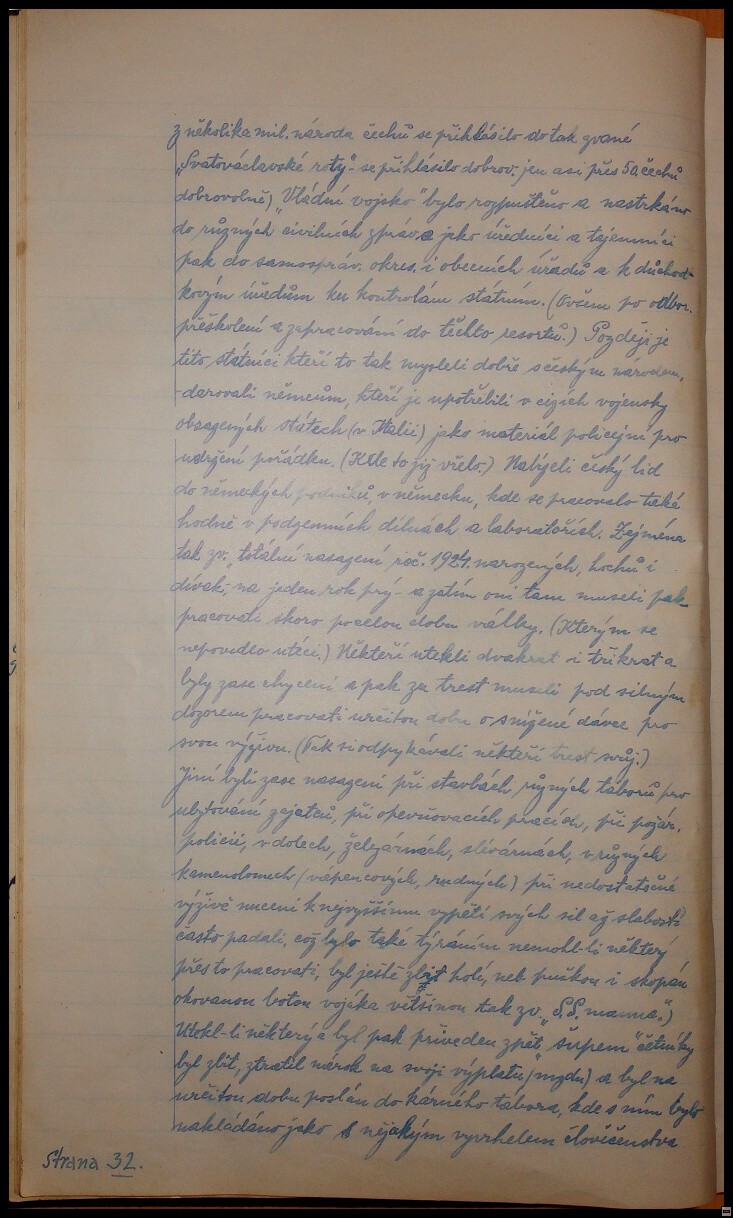 z několika mil. národa čechů se přihlásilo do tak zvané
„Svatováclavské roty"- se přihlásilo dobrov. jen asi přes 50 čechů
dobrovolně) „Vládní vojsko" bylo rozpuštěno a nastrkáno
do různých civilních zpráv. a jako úředníci a tajemníci
pak do samospráv. okres. i obecních úřadů a k důchod-
kovým úřadům ku kontrolám státním. (Ovšem po odbor.
přeškolení a zapracování do těchto resortů.) Později je
tito „státníci kteří to tak mysleli dobře s českým národem,
-darovali němcům, kteří je upotřebili v cizích vojensky
obsazených státech (v Italii) jako materiál policejní pro
udržení pořádku. (Kde to již vřelo.) Nabízeli český lid
do německých podniků, v německu, kde se pracovalo také
hodně v podzemních dílnách a laboratořích. Zejména
tak zv. „totální nasazení roč. 1924. narozených, hochů i
dívak,- na jeden rok prý - a zatím oni tam museli pak
pracovati skoro po celou dobu války. (Kterým se
nepovedlo utéci.) Někteří utekli dvakrát i třikrát a
byly zase chyceni a pak za trest museli pod silným
dozorem pracovati určitou dobu o snížené dávce pro
svou výživu. (Tak si odpykávali někteří trest svůj.)
Jiní byli zase nasazeni při stavbách různých táborů pro
ubytování zajatců, při opevňovacích pracích, při požár.
policii, v dolech, železárnách, slévárnách, v různých
kamenolomech (vápencových, rudných) při nedostatečné
výživě nuceni k nejvyššímu vypětí svých sil až slabostí
často padali, což bylo také týráním nemohl-li některý
přes to pracovati, byl ještě zbit holí, neb puškou i skopán
okovanou botou vojáka většinou tak zv. „S.S. manna.")
Utekl-li některý a byl pak přiveden zpět „šupem" četníky
byl zbit, ztratil nárok na svoji výplatu (mzdu) a byl na
určitou dobu poslán do kárného tábora, kde s ním bylo
nakládáno jako s nějakým vyvrhelem člověčenstva
Strana 32.